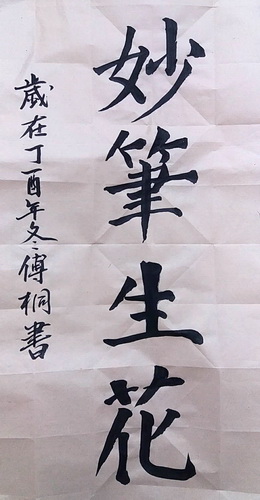 妙筆生花
歲在丁酉年冬傅桐書